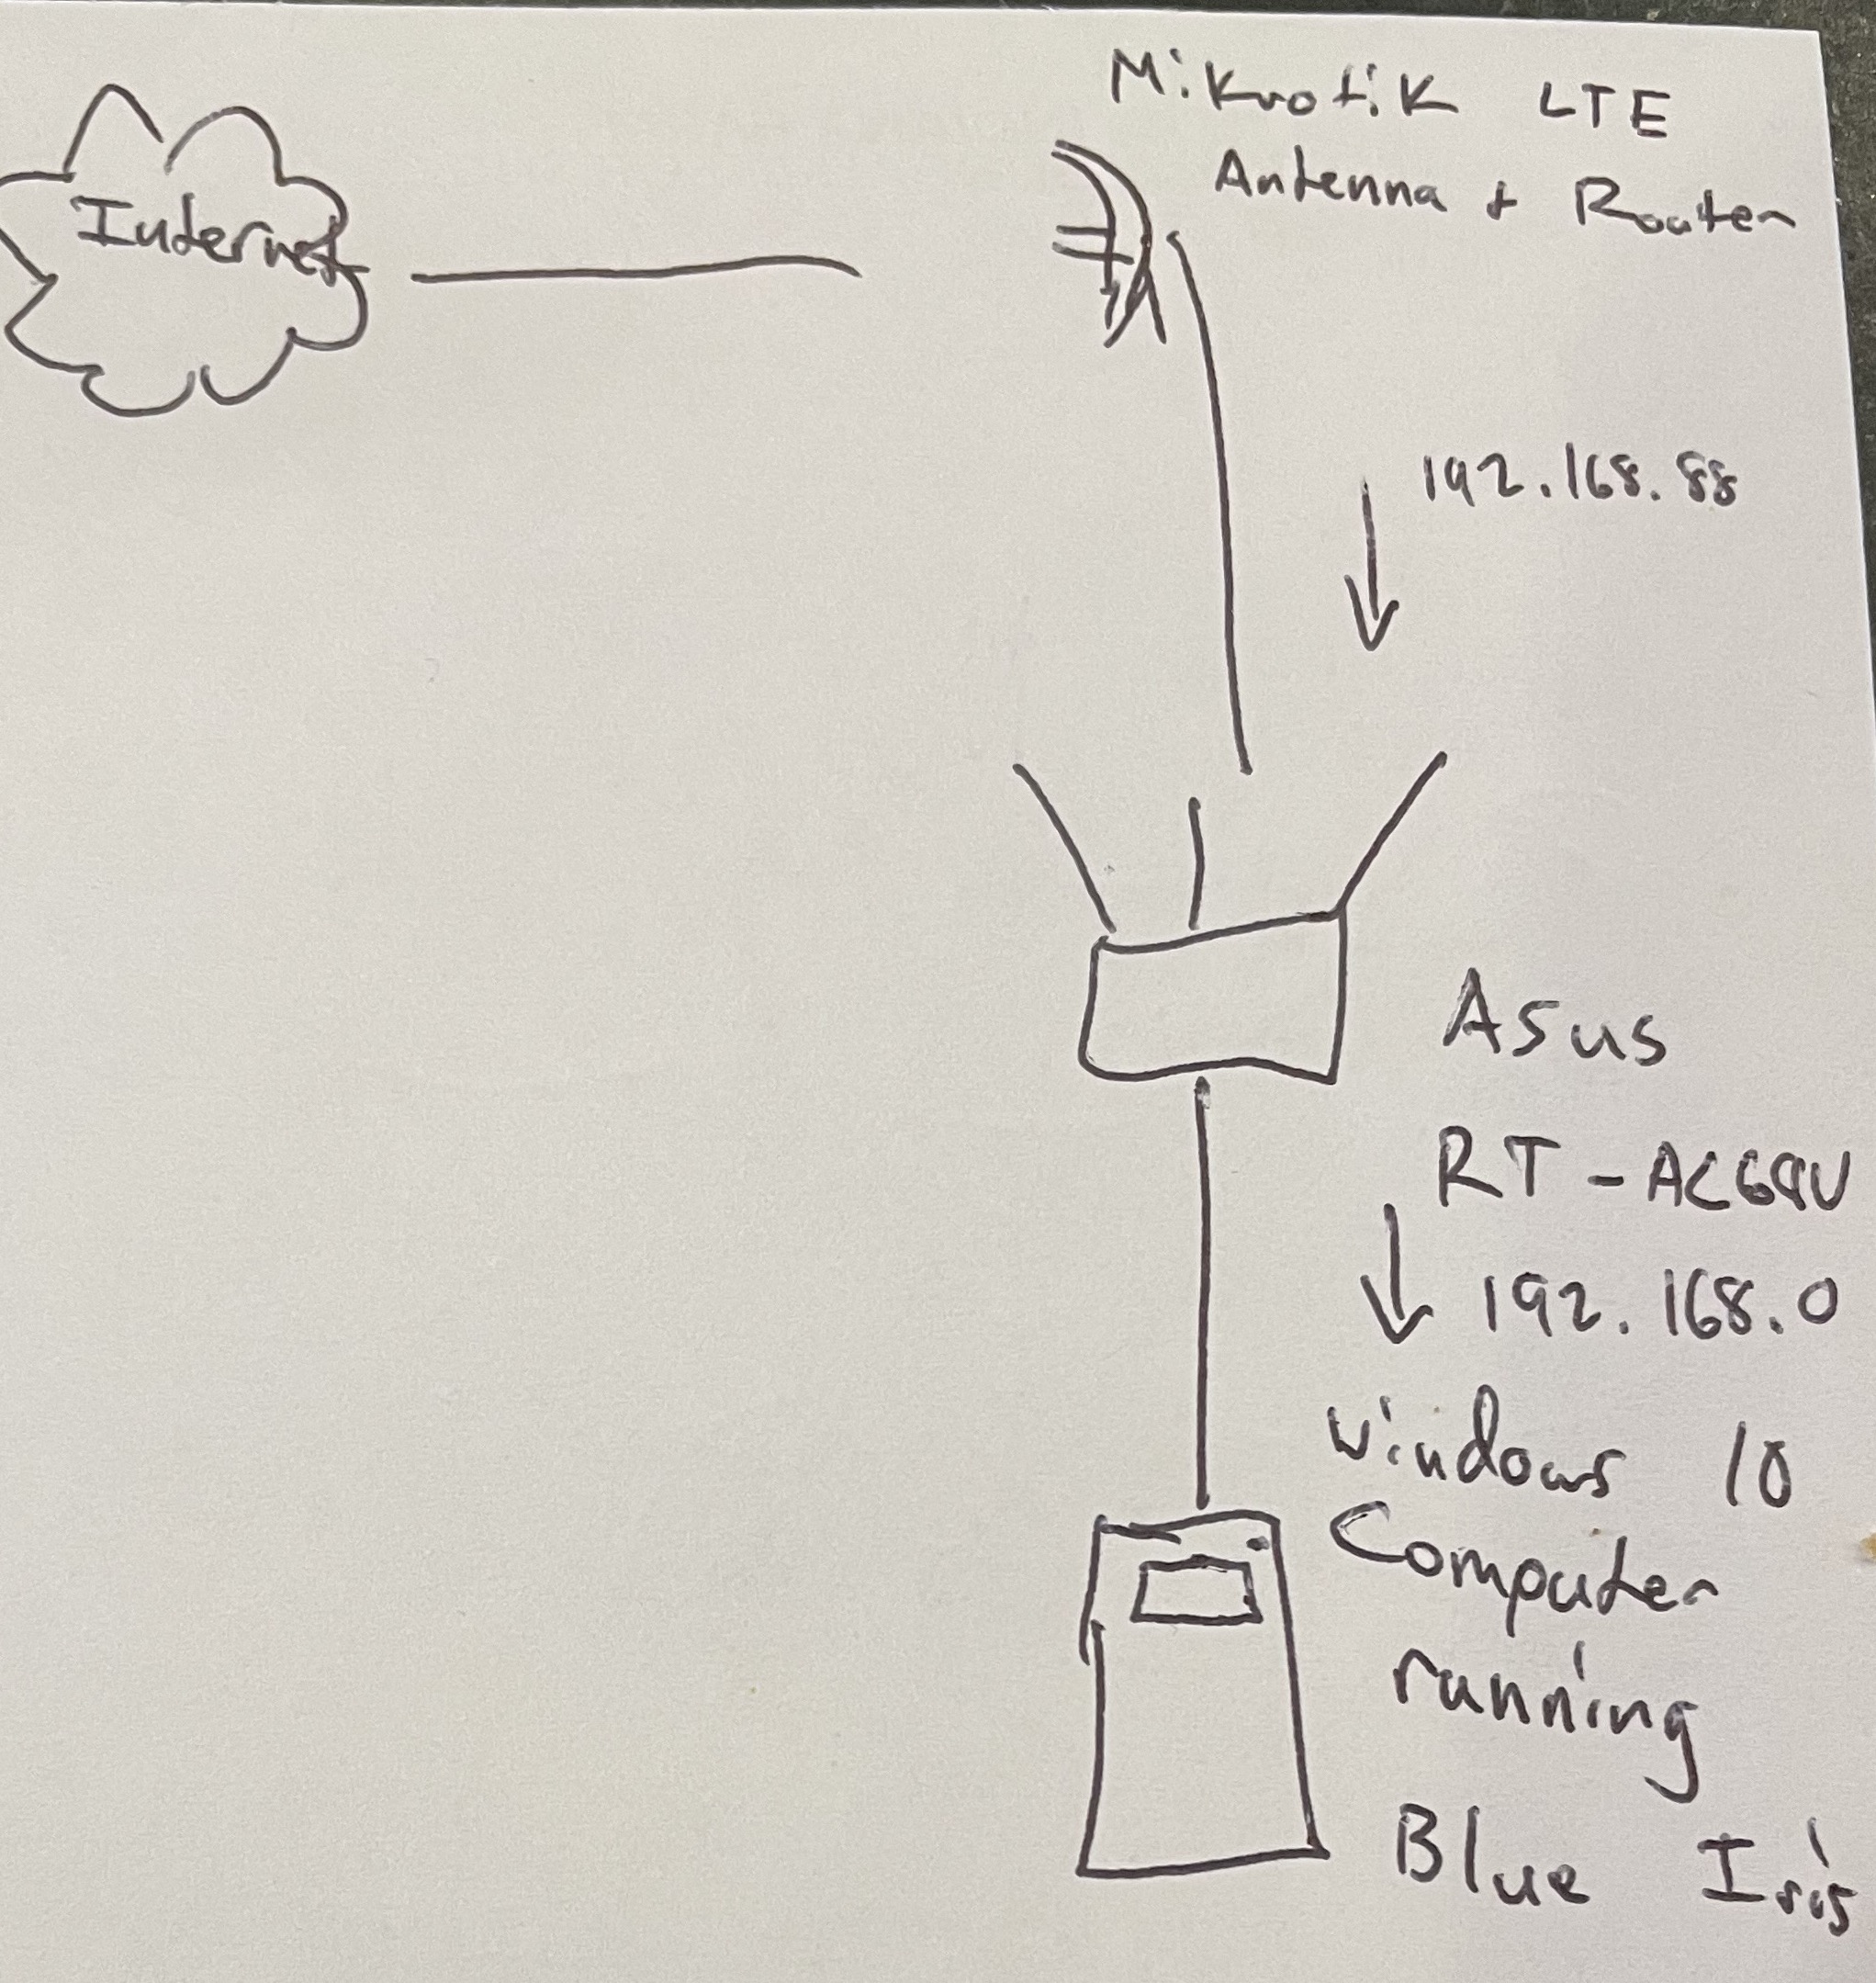 Mikrotik LTE
Antenna + Router
Internet
192.168.88
Asus
RT-AC68U
192.168.0
Windows 10
Computer
running
Blue Iris